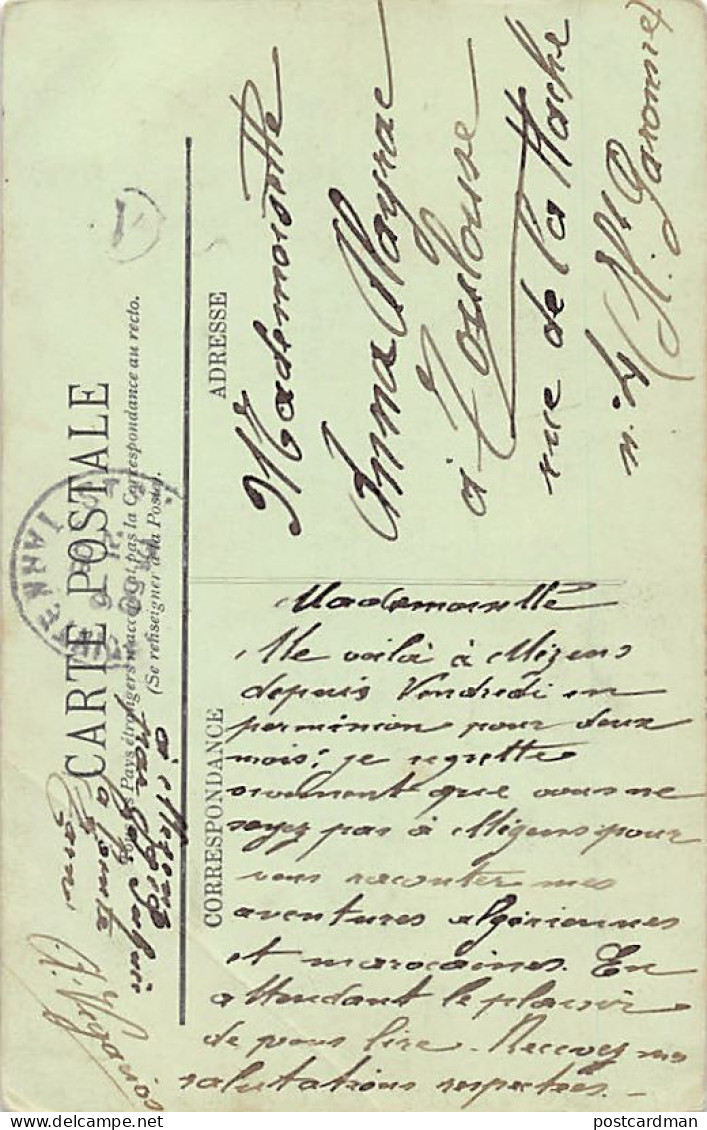 CARTE POSTALE
Tous les Pays étrangers n'acceptent pas la Correspondance au recto.
(Se renseigner à la Poste).
CORRESPONDANCE
ADRESSE
Mademoiselle
Me voilà à Mézens
depuis Vendredi en
permission pour deux
mois; je regrette
vraiment que vous ne
soyez pas à Mézens pour
vous raconter mes
aventures algériennes
et marocaines. En
attendant le plaisir
de vous lire. Recevez mes
salutations respectées.
à Mézens
par
la Pointe
Tarn
Mademoiselle
Anna Mayrac
à Toulouse
rue de la Hache
n. 7 (Hte Garonne)
postcardman